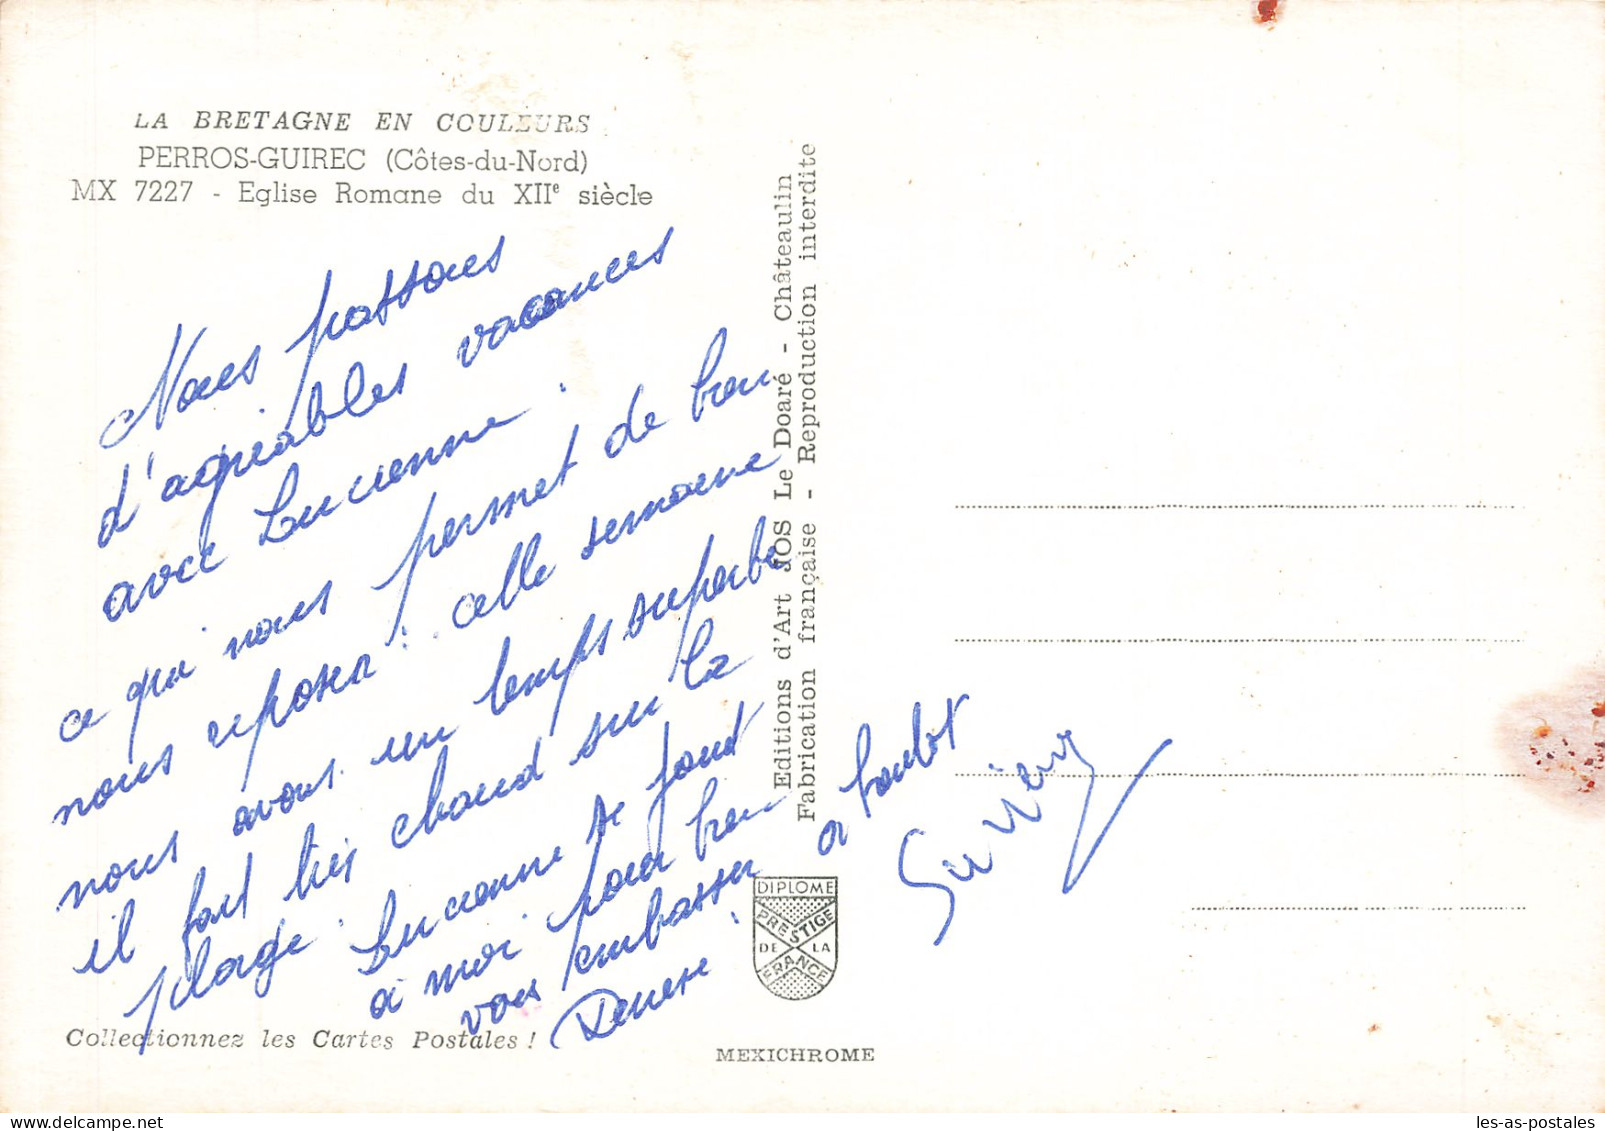 LA BRETAGNE EN COULEURS
PERROS-GUIREC (Côtes-du-Nord)
MX 7227 - Eglise Romane du XIIe siècle
Nous passons
d'agréables vacances
avec Lucienne.
ce qui nous permet de bien
nous reposer. cette semaine
nous avons un temps superbe
il fait très chaud sur la
plage. Lucienne se joint
à moi pour bien
vous embasser.
Denise
a bientot
Collectionnez les Cartes Postales !
Editions d'Art JOS Le Doaré - Châteaulin
Fabrication française - Reproduction interdite
DIPLOME
PRESTIGE
DE LA
FRANCE
MEXICHROME
les-as-postales